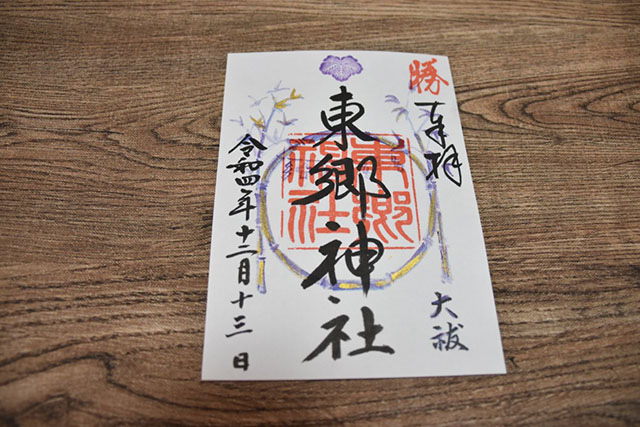 勝
奉拝
大祓
東郷神社
東郷神社
令和四年十二月十三日